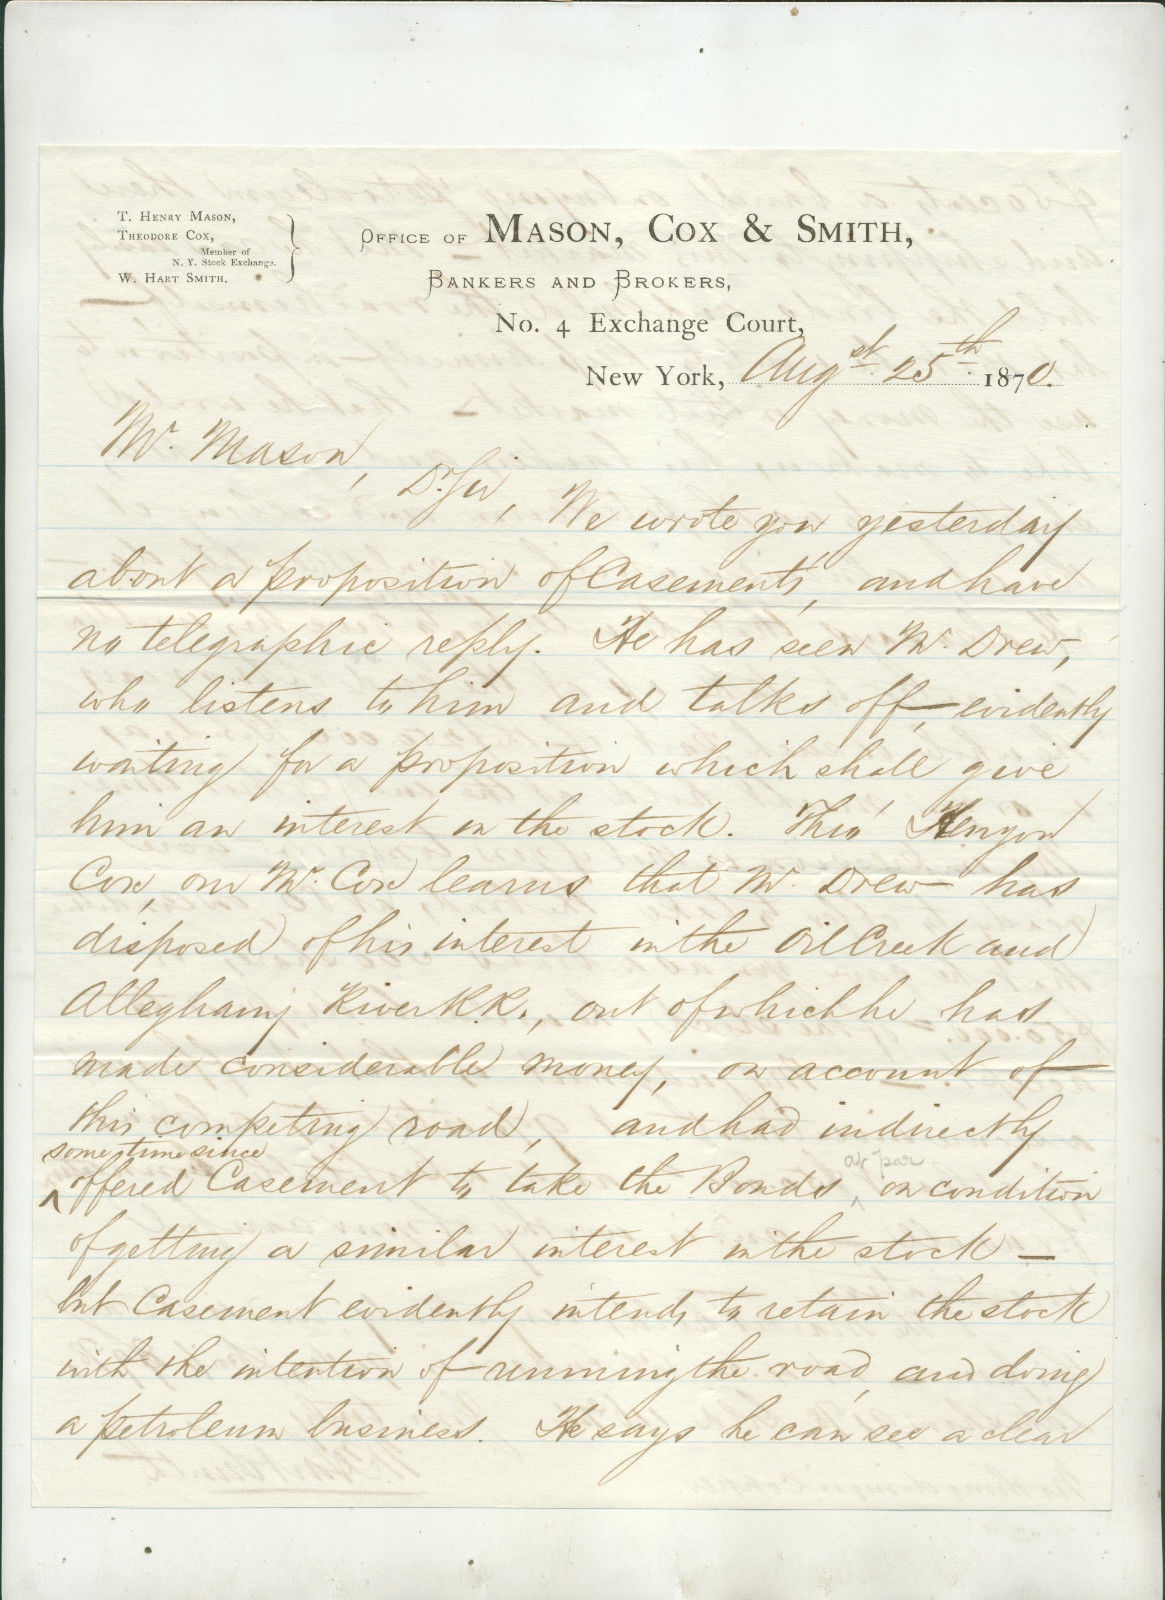 T. Henry Mason,
Theodore Cox,
Member of
N. Y. Stock Exchange.
W. Hart Smith.
Office of Mason, Cox & Smith,
Bankers and Brokers,
No. 4 Exchange Court,
New York, Augst 25th 1870.
Mr. Mason,
Dr Sir, We wrote you yesterday
about a proposition of Casements, and have
no telegraphic reply. He has seen Mr. Drew,
who listens to him and talks off, evidently
waiting for a proposition which shall give
him an interest in the stock. Thro' Kenyon
Cox, our Mr. Cox learns that Mr. Drew has
disposed of his interest in the Oil Creek and
Alleghany River R.R., out of which he has
made considerable money, on account of
this competing road, and had indirectly
some time since
offered Casement to take the Bonds at par on condition
of getting a similar interest in the stock —
but Casement evidently intends to retain the stock
with the intention of running the road, and doing
a petroleum business. He says he can see a clear